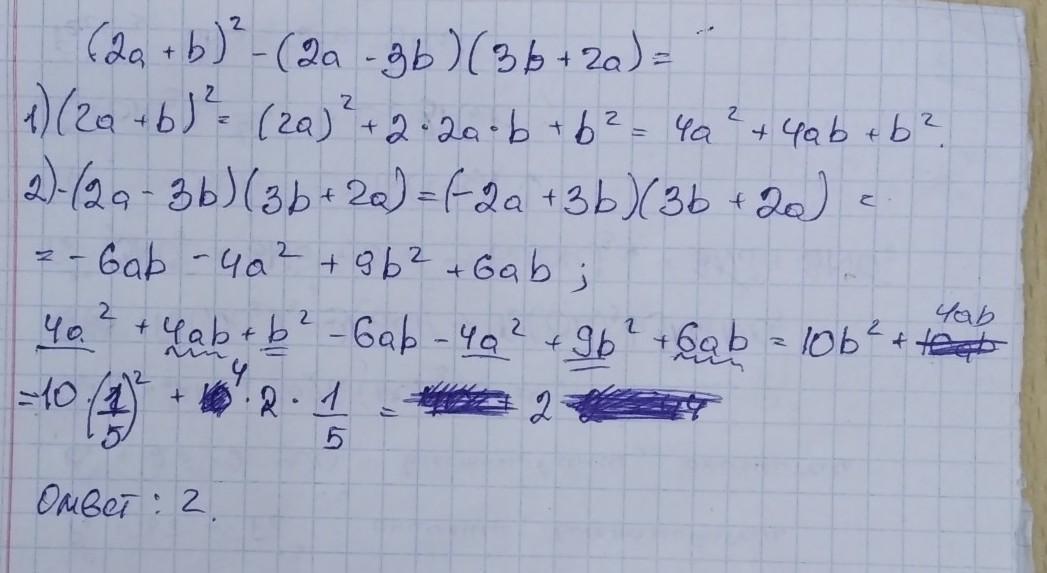 (2a + b)² - (2a - 3b)(3b + 2a) =
1) (2a + b)² = (2a)² + 2 · 2a · b + b² = 4a² + 4ab + b².
2) -(2a - 3b)(3b + 2a) = (-2a + 3b)(3b + 2a) =
= - 6ab - 4a² + 9b² + 6ab ;
4a² + 4ab + b² - 6ab - 4a² + 9b² + 6ab = 10b² + 4ab
= 10 · (1/5)² + 4 · 2 · 1/5 = 2
Ответ : 2.